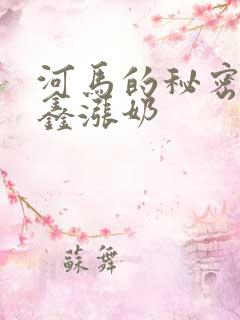 河馬的秘密
鑫漲奶
蘇舞